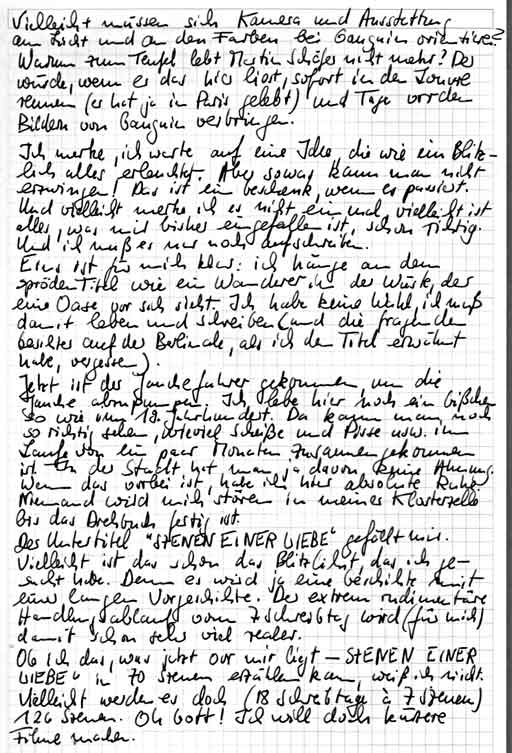 Vielleicht müssen sich Kamera und Ausstattung
am Licht und an den Farben bei Gauguin orientieren?
Warum zum Teufel lebt Martin Schäfer nicht mehr? Der
würde, wenn er das hier liest, sofort in den Louvre
rennen (er hat ja in Paris gelebt) und Tage vor den
Bildern von Gauguin verbringen.
Ich merke, ich warte auf eine Idee, die wie ein Blitz-
lich alles erleuchtet. Aber sowas kann man nicht
erzwingen! Das ist ein Geschenk, wenn es passiert.
Und vielleicht merke ich es nicht einmal, vielleicht ist
alles, was mir bisher eingefallen ist, schon richtig.
Und ich muß es nur noch aufschreiben.
Eins ist für mich klar: ich hänge an dem
spröden Titel wie ein Wanderer in der Wüste, der
eine Oase vor sich sieht. Ich habe keine Wahl, ich muß
damit leben und schreiben (und die fragenden
Gesichter auf der Berlinale, als ich den Titel erwähnt
habe, vergessen).
Jetzt ist der Jauchefahrer gekommen, um die
Jauche abzupumpen. Ich lebe hier noch ein bißchen
so wie im 18. Jahrhundert. Da kann man noch
so richtig sehen, wieviel Scheiße und Pisse usw. im
Laufe von ein paar Monaten zusammengekommen
ist. In der Stadt hat man ja davon keine Ahnung.
Wenn das vorbei ist, habe ich hier absolute Ruhe.
Niemand wird mich stören in meiner Klosterzelle
bis das Drehbuch fertig ist.
Der Untertitel "SZENEN EINER LIEBE" gefällt mir.
Vielleicht ist das schon das Blitzlicht, das ich ge-
sucht habe. Denn es wird ja eine Geschichte mit
einer langen Vorgeschichte. Der extrem rudimentäre
Handlungsablauf vom 7. Schreibtag wird (für mich)
damit schon sehr viel realer.
Ob ich das, was jetzt vor mir liegt – SZENEN EINER
LIEBE" in 70 Szenen erzählen kann, weiß ich nicht.
Vielleicht werden es doch (18 Schreibtage à 7 Szenen)
126 Szenen. Oh Gott! Ich will doch kürzere
Filme machen.